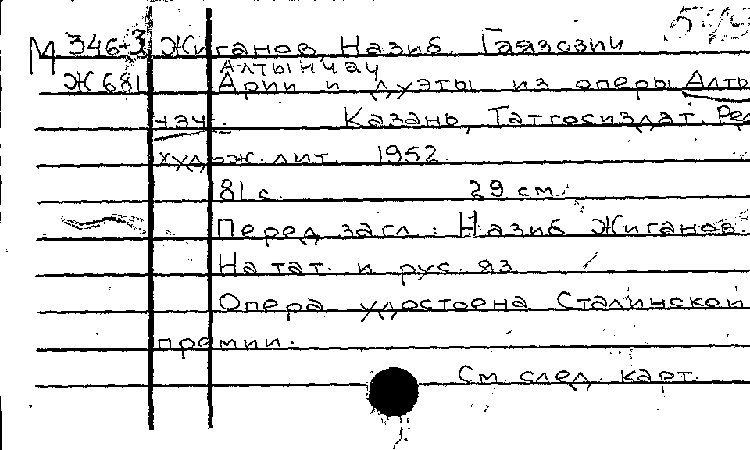 М 346-3 Жиганов Назиб Гаязович
Алтынчач
Ж 681 Арии и дуэты из оперы Алтын
чач. Казань, Татгосиздат. Ред.
худож. лит. 1952.
81 с. 29 см.
Перед загл.: Назиб Жиганов.
На тат. и рус. яз.
Опера удостоена Сталинской
премии.
См. след. карт.